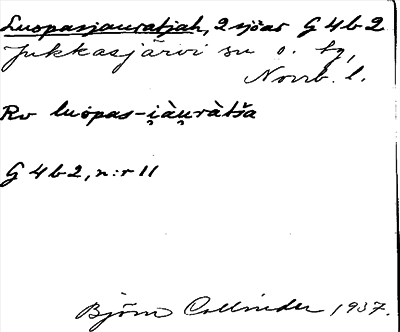 Luopasjauratjah, 2 sjöar G 4 b 2
Jukkasjärvi sn o. tg,
Norrb. l.
Rv luopas-i̯àu̯ràtša
G 4 b 2, n:r 11
Björn Collinder 1937.